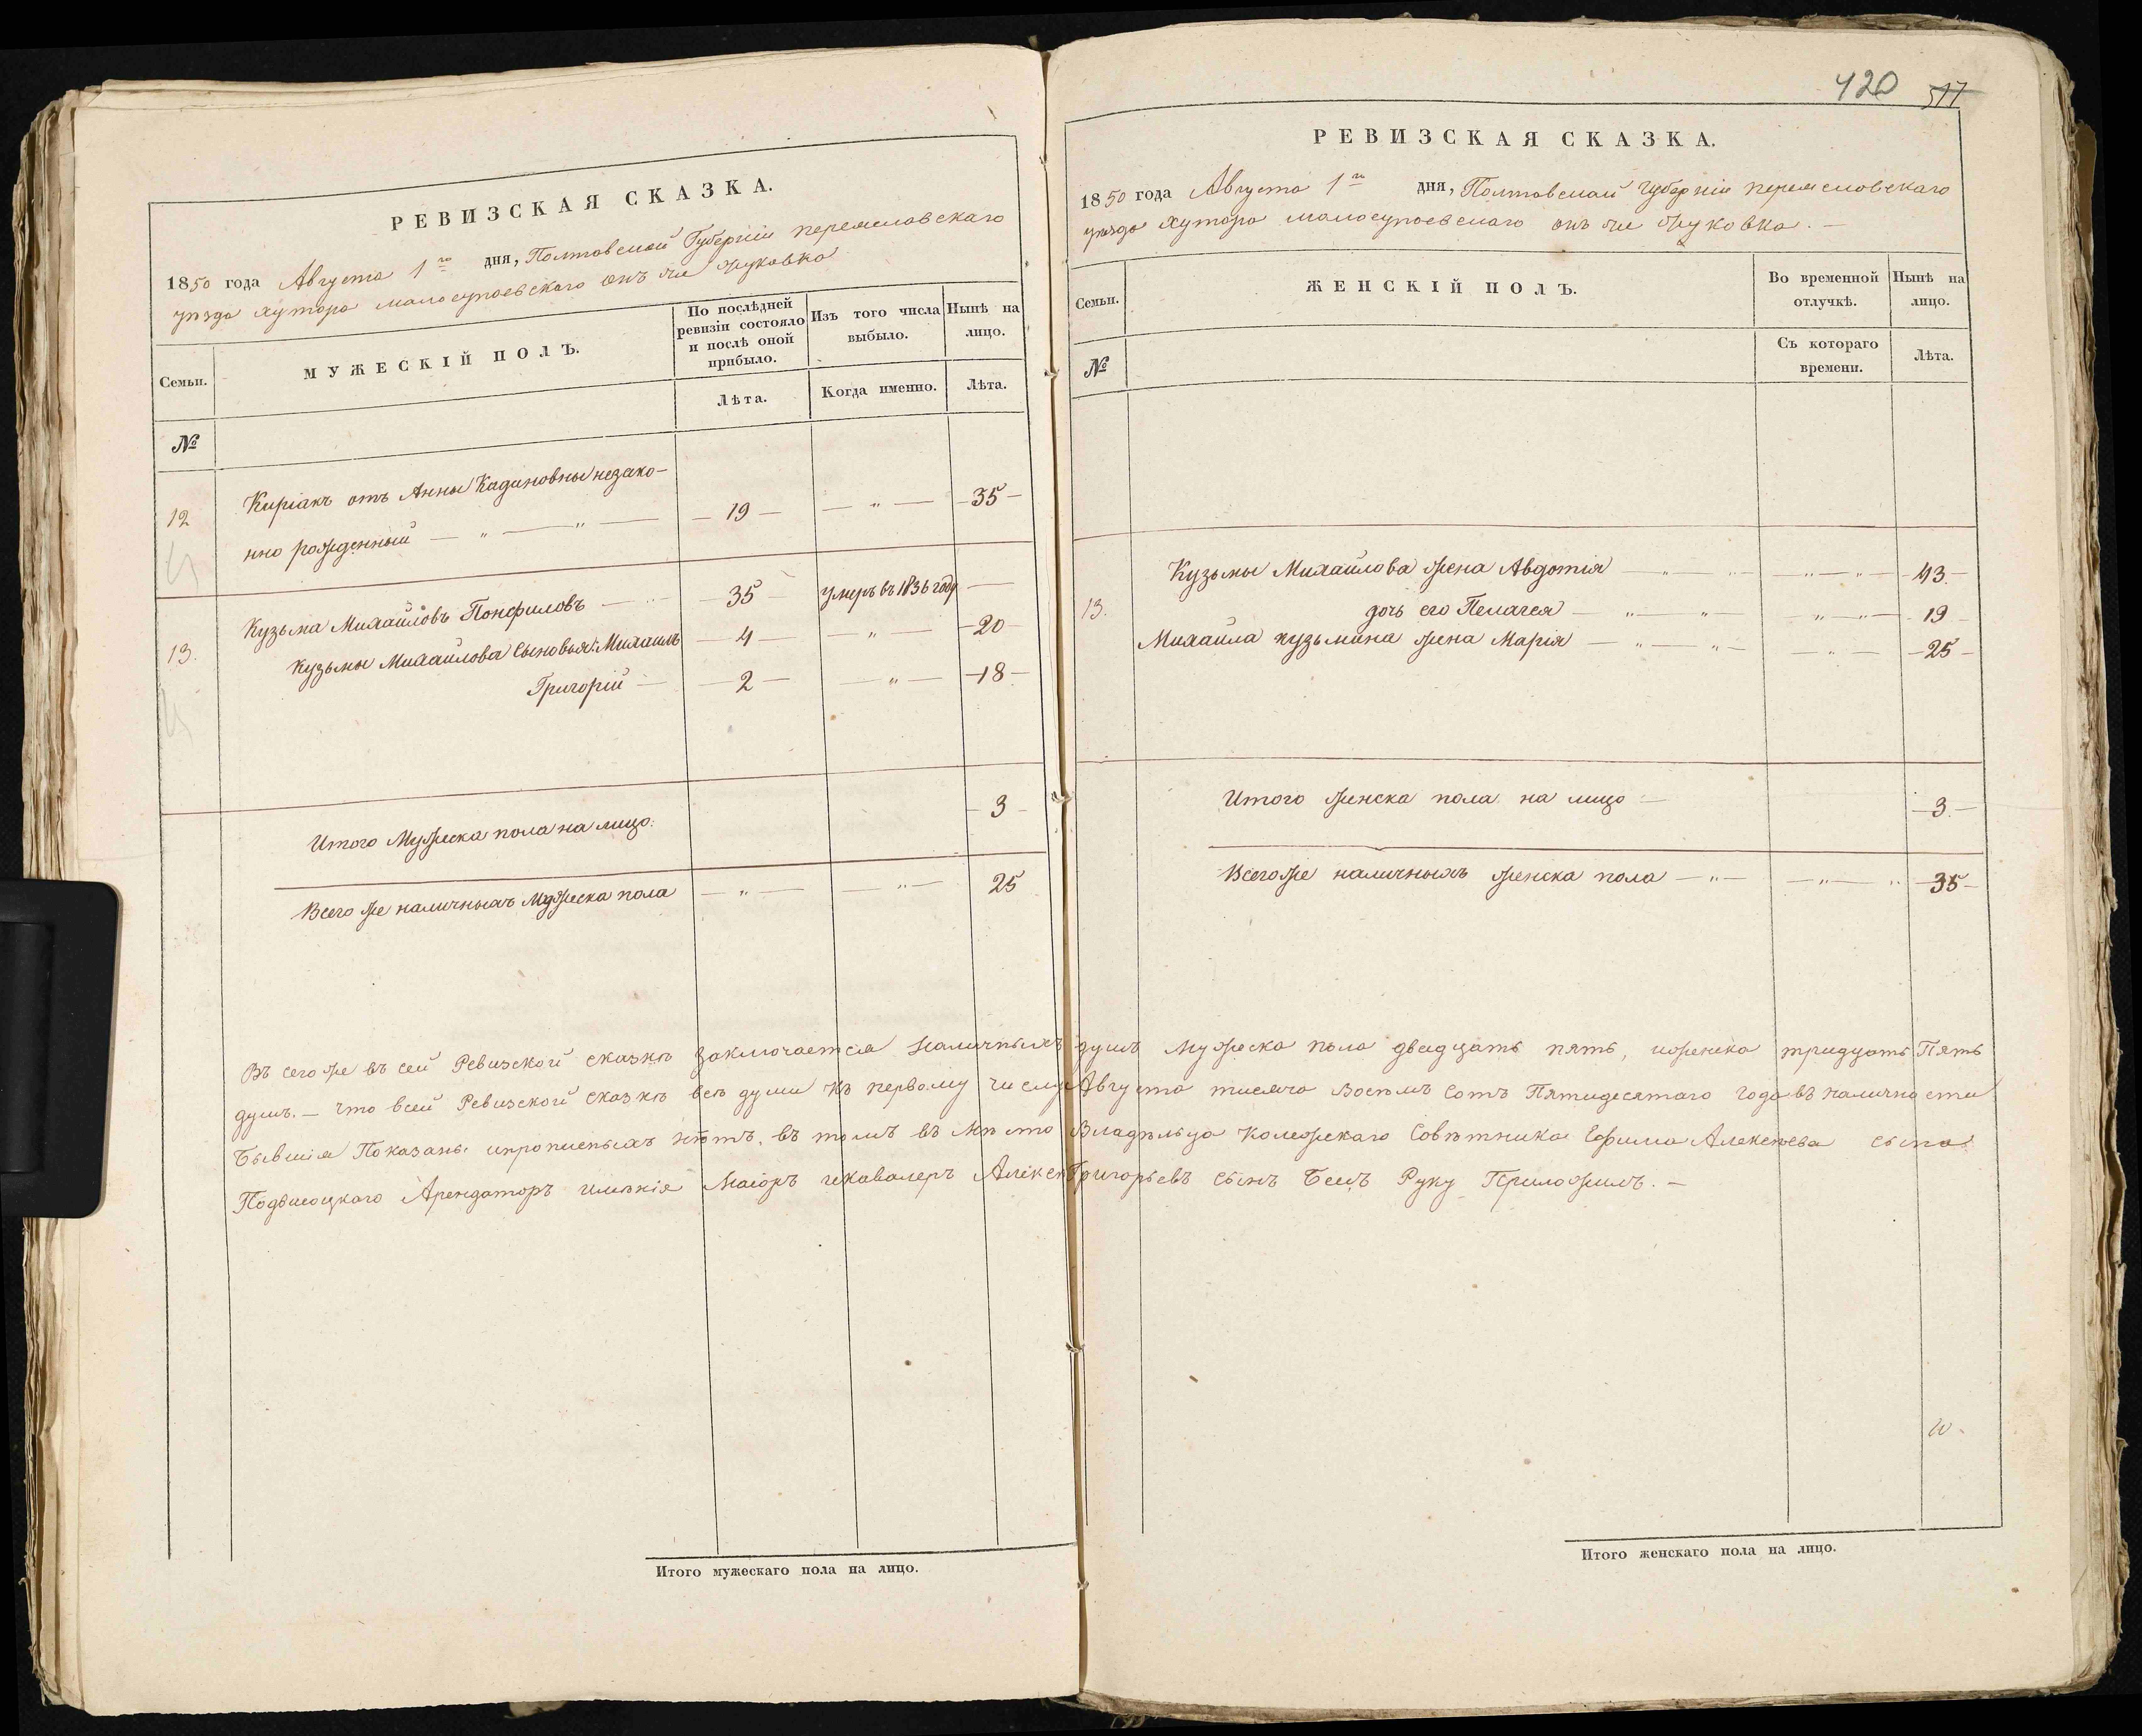 РЕВИЗСКАЯ СКАЗКА.
1850 года Августа 1го дня, Полтавской Губерніи переяславскаго
уѣзда хутора малосупоевскаго онъ же Жуковка
Семьи.
МУЖЕСКІЙ ПОЛЪ.
По послѣдней ревизіи состояло и послѣ оной прибыло.
Изъ того числа выбыло.
Нынѣ на лицо.
№
Лѣта.
Когда именно.
Лѣта.
12 Киріакъ отъ Анны Кадиновны незако-
нно рожденный — „ — „ — — 19 — — „ — — 35 —
13. Кузьма Михайловъ Понфиловъ — 35 — умеръ въ 1836 году —
Кузьмы Михайлова Сыновья: Михаилъ — 4 — — „ — — 20 —
Григорій — — 2 — — „ — — 18 —
Итого Мужеска пола на лицо. — 3 —
Всего же наличныхъ Мужеска пола — „ — — „ — 25
420 517
РЕВИЗСКАЯ СКАЗКА.
1850 года Августа 1го дня, Полтавской губерніи переяславскаго
уѣзда хутора малосупоевскаго онъ же Жуковка. —
Семьи.
ЖЕНСКІЙ ПОЛЪ.
Во временной отлучкѣ.
Нынѣ на лицо.
№
Съ котораго времени.
Лѣта.
13. Кузьмы Михайлова жена Авдотія — „ — — „ — „ — 43 —
дочь его Пелагея — „ — „ — — „ — „ — 19 —
Михаила кузьмина жена Марія — „ — „ — — „ — — 25 —
Итого женска пола на лицо — — 3 —
Всего же наличныхъ женска пола — „ — — „ — „ — 35 —
Въ сего же въ сей Ревизской сказкѣ заключается наличныхъ душъ мужеска пола двадцать пять, иженска тридцать Пять
душъ. — что всей Ревизской сказкѣ всѣ души къ первому числу Августа тысяча Восемъ сотъ Пятидесятаго года въ наличности
Бывшія Показаны ипрописныхъ нѣтъ. въ томъ въ мѣсто Владѣльца Колежскаго Совѣтника Ефима Алексѣева сына
Подвысоцкаго Арендаторъ имѣнія Маіоръ икавалеръ Алексѣй Григорьевъ сынъ Руку Приложилъ. —
Итого мужескаго пола на лицо.
Итого женскаго пола на лицо.